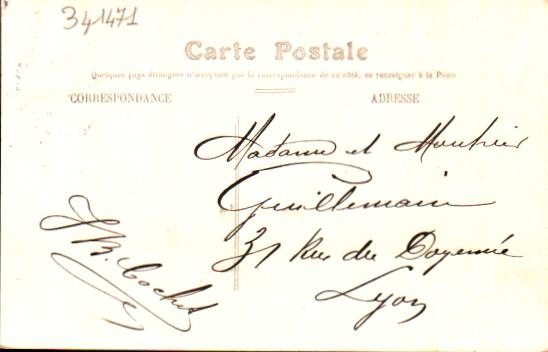 341471
Carte Postale
Quelques pays étrangers n'acceptant pas la correspondance de ce côté, se renseigner à la Poste
CORRESPONDANCE
ADRESSE
Madame et Monsieur
Guillemain
31 Rue du Doyenné
Lyon
JB. Cochet